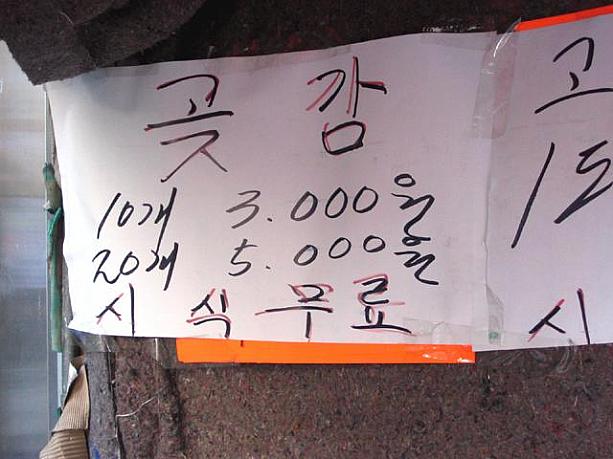 곳감
10개 3.000원
20개 5.000원
시식무료
고
1도
시